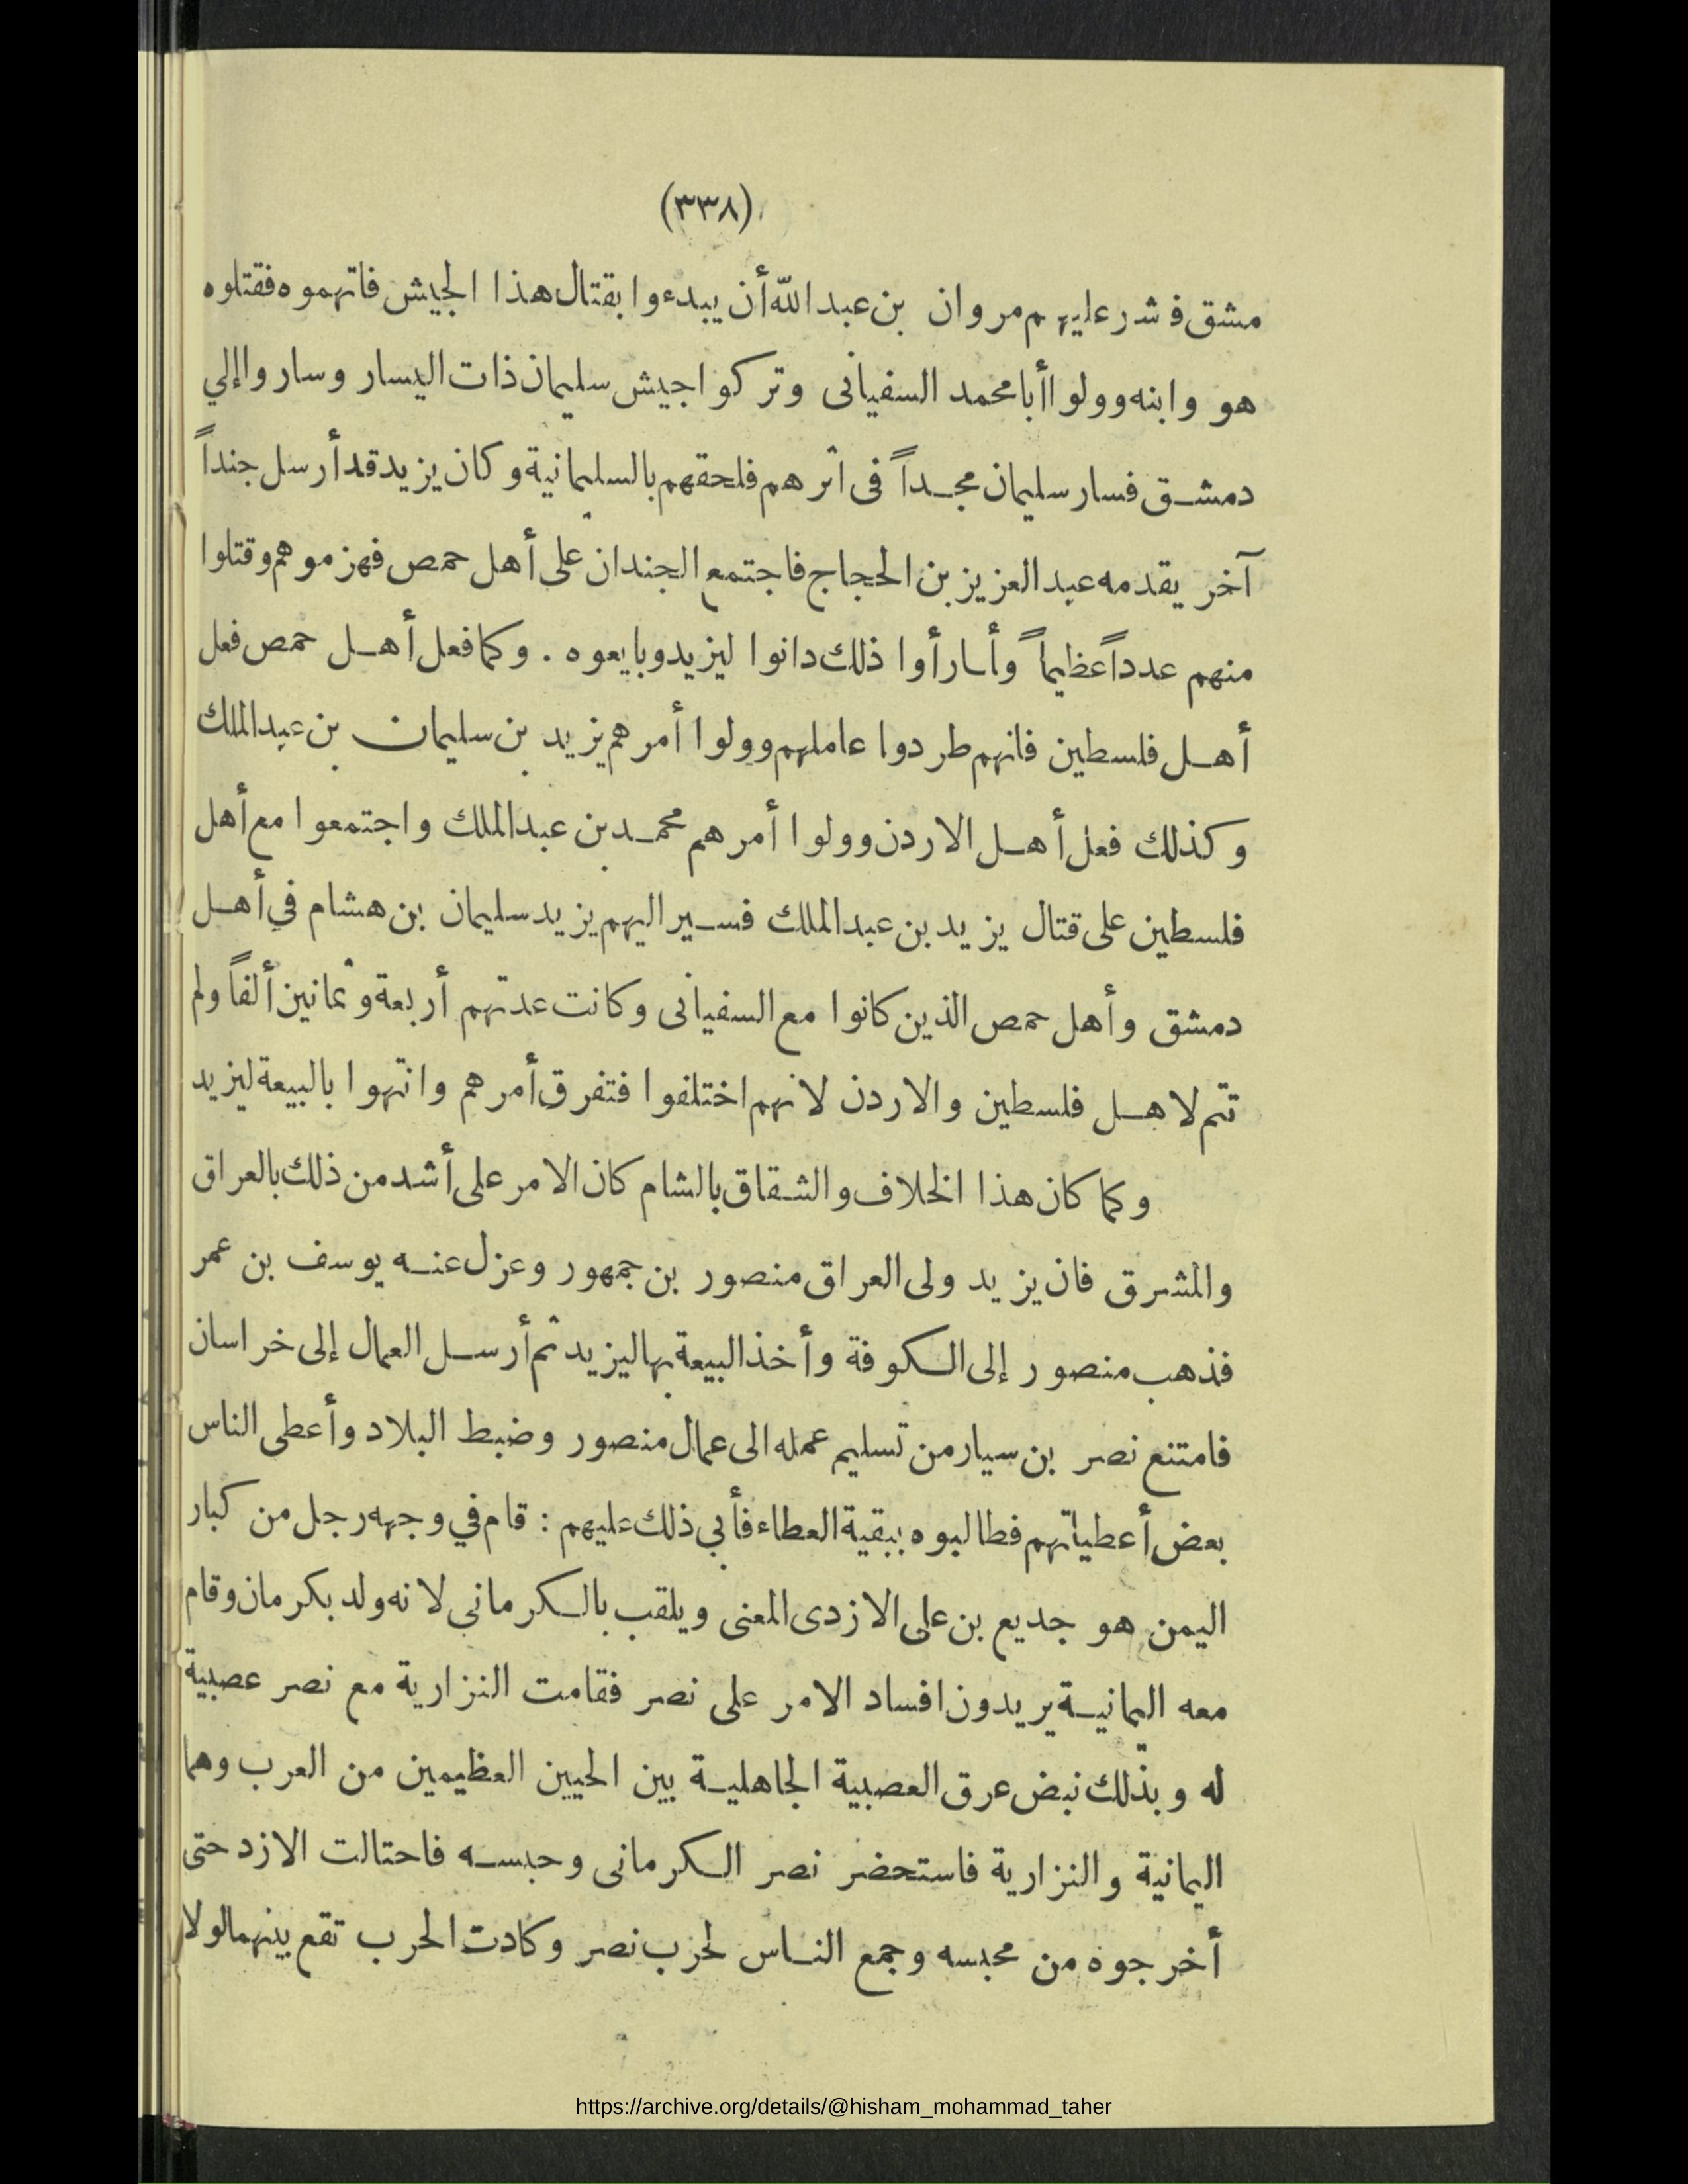 (٣٣٨)
مشق فشر عليهم مروان بن عبد الله أن يبدءوا بقتال هذا الجيش فاتهموه فقتلوه
هو وابنه وولوا أبا محمد السفيانى وتركوا جيش سليمان ذات اليسار وساروا إلي
دمشق فسار سليمان مجداً فى اثرهم فلحقهم بالسليمانية وكان يزيد قد أرسل جنداً
آخر يقدمه عبد العزيز بن الحجاج فاجتمع الجندان على أهل حمص فهزموهم وقتلوا
منهم عدداً عظيماً وأـا رأوا ذلك دانوا ليزيد وبايعوه . وكما فعل أهل حمص فعل
أهل فلسطين فانهم طردوا عاملهم وولوا أمرهم يزيد بن سليمان بن عبد الملك
وكذلك فعل أهل الاردن وولوا أمرهم محمد بن عبد الملك واجتمعوا مع أهل
فلسطين على قتال يزيد بن عبد الملك فسير اليهم يزيد سليمان بن هشام في أهل
دمشق وأهل حمص الذين كانوا مع السفيانى وكانت عدتهم أربعة وثمانين ألفاً ولم
تتم لاهل فلسطين والاردن لانهم اختلفوا فتفرق أمرهم وانتهوا بالبيعة ليزيد
وكما كان هذا الخلاف والشقاق بالشام كان الامر على أشد من ذلك بالعراق
والمشرق فان يزيد ولى العراق منصور بن جمهور وعزل عنه يوسف بن عمر
فذهب منصور إلى الكوفة وأخذ البيعة بها ليزيد ثم أرسل العمال إلى خراسان
فامتنع نصر بن سيار من تسليم عمله الى عمال منصور وضبط البلاد وأعطى الناس
بعض أعطياتهم فطالبوه ببقية العطاء فأبي ذلك عليهم : قام في وجهه رجل من كبار
اليمن هو جديع بن على الازدى المعنى ويلقب بالكرمانى لانه ولد بكرمان وقام
معه اليمانية يريدون افساد الامر على نصر فقامت النزارية مع نصر عصبية
له وبذلك نبض عرق العصبية الجاهلية بين الحيين العظيمين من العرب وهما
اليمانية والنزارية فاستحضر نصر الكرمانى وحبسه فاحتالت الازد حتى
أخرجوه من محبسه وجمع الناس لحرب نصر وكادت الحرب تقع بينهما لولا
https://archive.org/details/@hisham_mohammad_taher